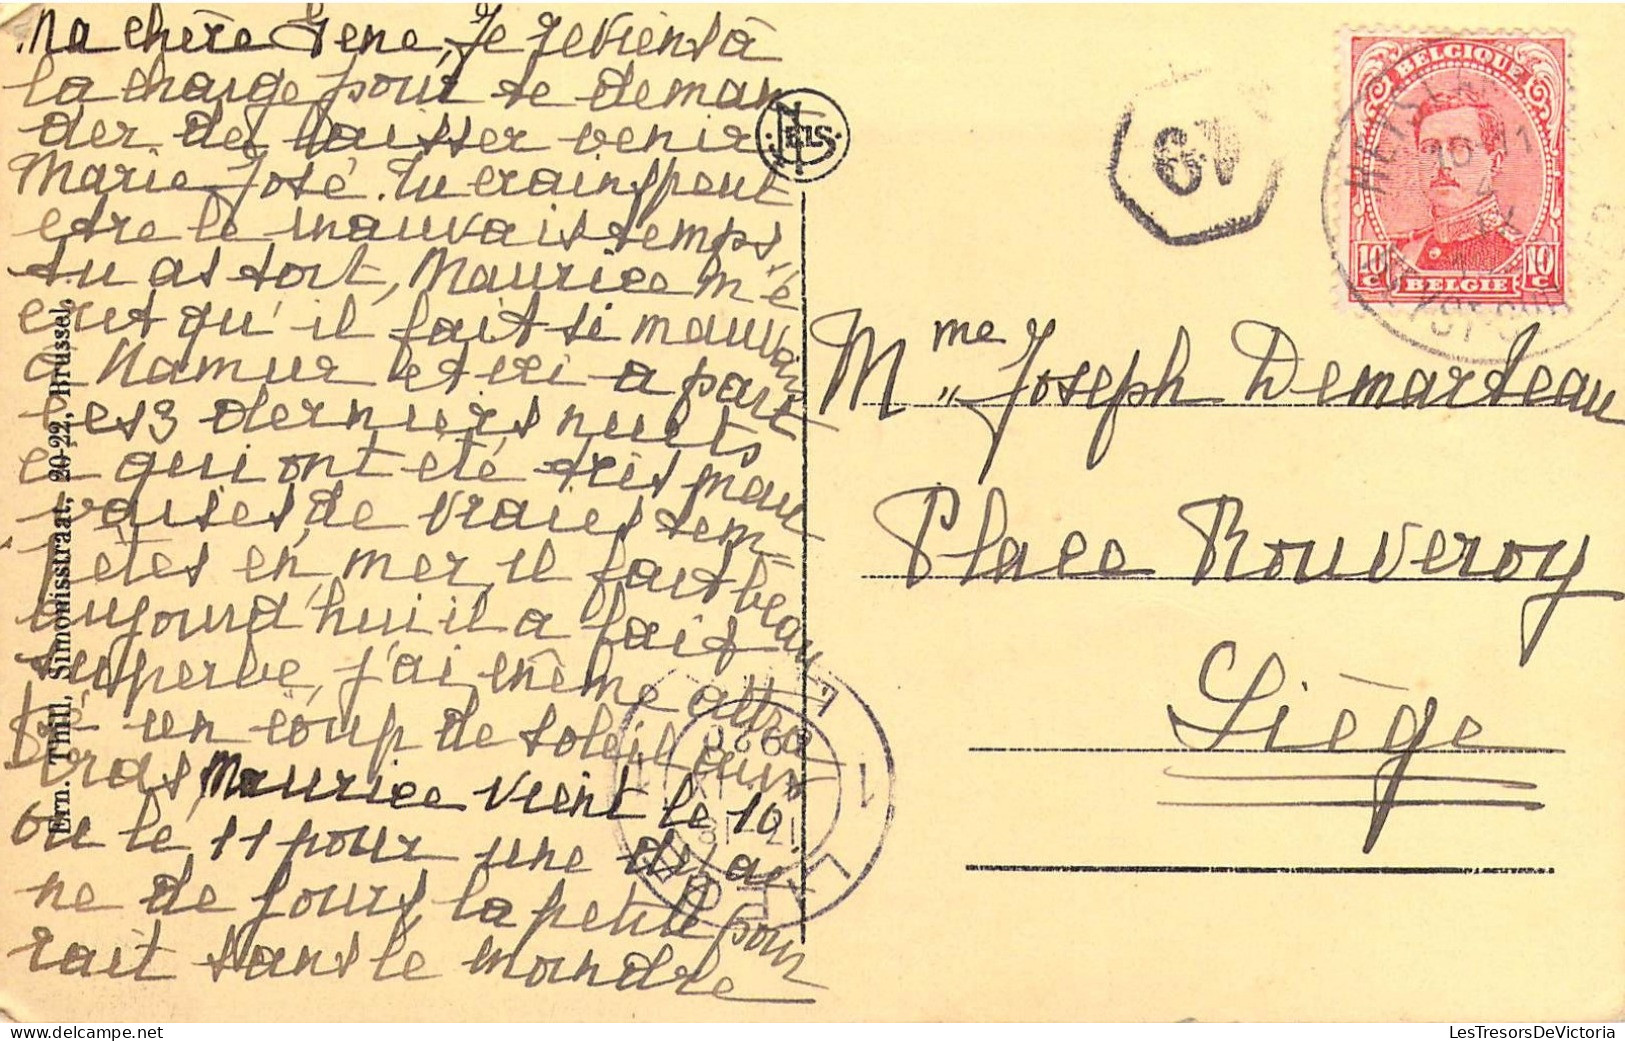 Ma chère Gene, Je reviens à
la charge pour te deman
der de laisser venir
Marie José. Tu crains peut
etre le mauvais temps,
tu as tort, Maurice m'é
crit qu'il fait si mauvais
a Namur et ici a part
les 3 derniers nuits
qui ont été très mau
vaises, de vraies tem
pêtes en mer, il fait beau
aujourd'hui il a fait
superbe, j'ai même attra
pé un coup de soleil aux
bras, Maurice vient le 10
ou le 11 pour une dizai
ne de jours, la petite pour
rait sans le moindre
Ern. Thill, Simonisstraat, 20-22, Brussel.
NELS
49
BELGIQUE
10 c
10 c
BELGIE
HEIST
10-11
4
IX
1
1920
IX
Mme Joseph Demarteau
Place Rouveroy
Liège
LesTresorsDeVictoria.com